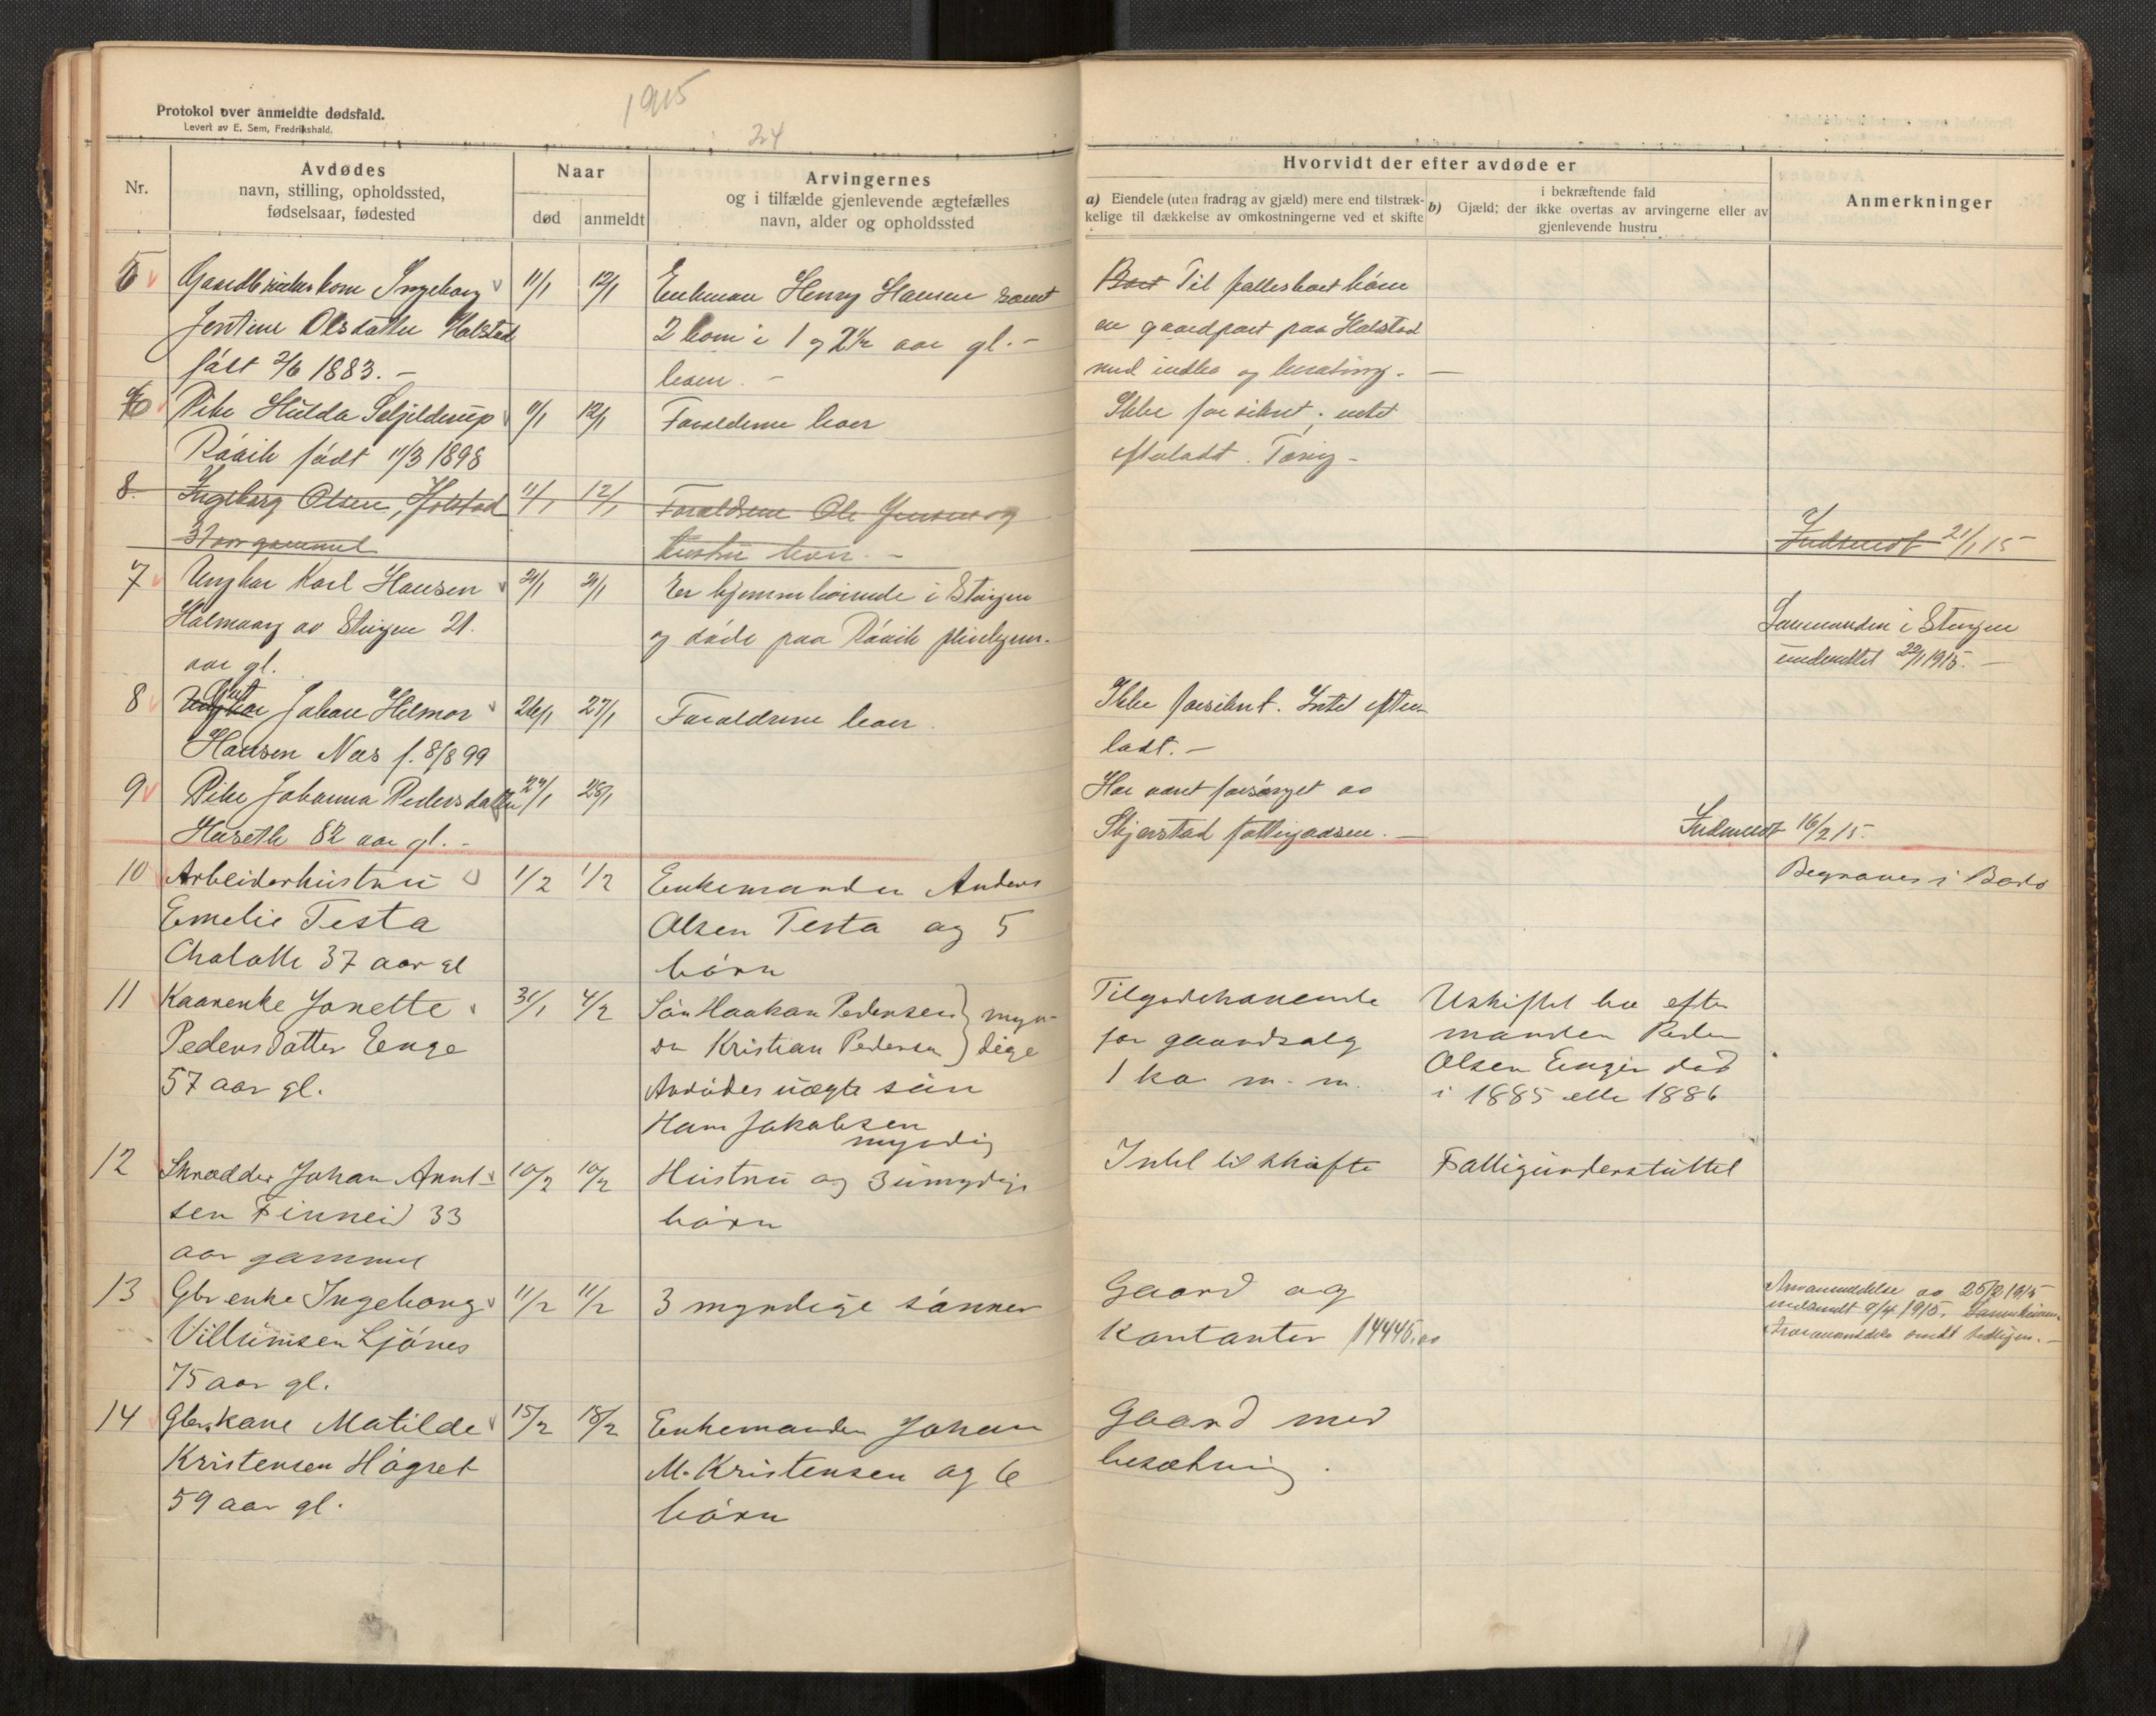 1915
Protokol over anmeldte dødsfald.
Levert av E. Sem, Fredrikshald.
24
Nr.
Avdødes
navn, stilling, opholdssted,
fødselsaar, fødested
Naar
død
anmeldt
Arvingernes
og i tilfælde gjenlevende ægtefælles
navn, alder og opholdssted
Hvorvidt der efter avdøde er
a) Eiendele (uten fradrag av gjæld) mere end tilstræk-
kelige til dækkelse av omkostningerne ved et skifte
b)
i bekræftende fald
Gjæld; der ikke overtas av arvingerne eller av
gjenlevende hustru
Anmerkninger
5 Gaardbrukerkone Ingeborg 11/1 12/1 Enkeman Henry Hansen samt
Jentine Olsdatter Holstad 2 born i 1 og 2½ aar gl. -
født 2/6 1883. - lever. -
Til fællesboet hører
en gaardpart paa Holstad
med indbo og besætning. -
6 Pike Hulda Schjelderup 11/1 12/1 Forældrene lever
Røvik født 11/3 1898
Ikke forsikret; intet
efterladt.
8. Ingeborg Olsen, Holstad 11/1 12/1 Forældrene Ole Jensen og
31 aar gammel hustru lever. -
Indsendt 21/1 15
7 Ungkar Karl Hansen 21/1 21/1 Er hjemmehørende i Steigen
Holmaag av Steigen 21. og døde paa Røvik pleiehjem.
aar gl.
Lensmanden i Steigen
underrettet 22/1 1915. -
8 Gut
Ungkar Johan Hilmar 26/1 27/1 Forældrene lever.
Hansen Næs f. 8/8 99
Ikke forsikret. Intet efter-
ladt. -
9 Pike Johanna Pedersdatter 27/1 28/1
Huseth 82 aar gl. -
Har været forsørget av
Skjerstad fattigvæsen. -
Indsendt 16/2 15.
10 Arbeiderhustru 1/2 1/2 Enkemanden Anders
Emelie Testa Olsen Testa og 5
Chalotte 37 aar gl børn
Begraves i Bodø
11 Kaarenke Jonette 31/1 4/2 Søn Haakon Pedersen } myn-
Pedersdatter Enge Do Kristian Pedersen } dige
57 aar gl. Avdødes uægte søn
Hans Jakobsen
myndig
Tilgodehavende
for gaardsalg
1 ko m. m.
Uskiftet bo efter
manden Peder
Olsen Enge død
i 1885 elle 1886
12 Skrædder Johan Arnt- 10/2 10/2 Hustru og 3 umyndige
sen Finneid 33 børn
aar gammel
Intet til skifte Fattigunderstøttet
13 Gbr enke Ingeborg 11/2 11/2 3 myndige sønner
Villumsen Ljønes
75 aar gl.
Gaard og
Kontanter 14446.00
Arveanmeldelse av 25/2 1915
indsendt 9/4 1915.
14 Gbr. kone Matilde 15/2 18/2 Enkemanden Johan
Kristensen Høgset M. Kristensen og 6
59 aar gl. børn
Gaard med
besætning.